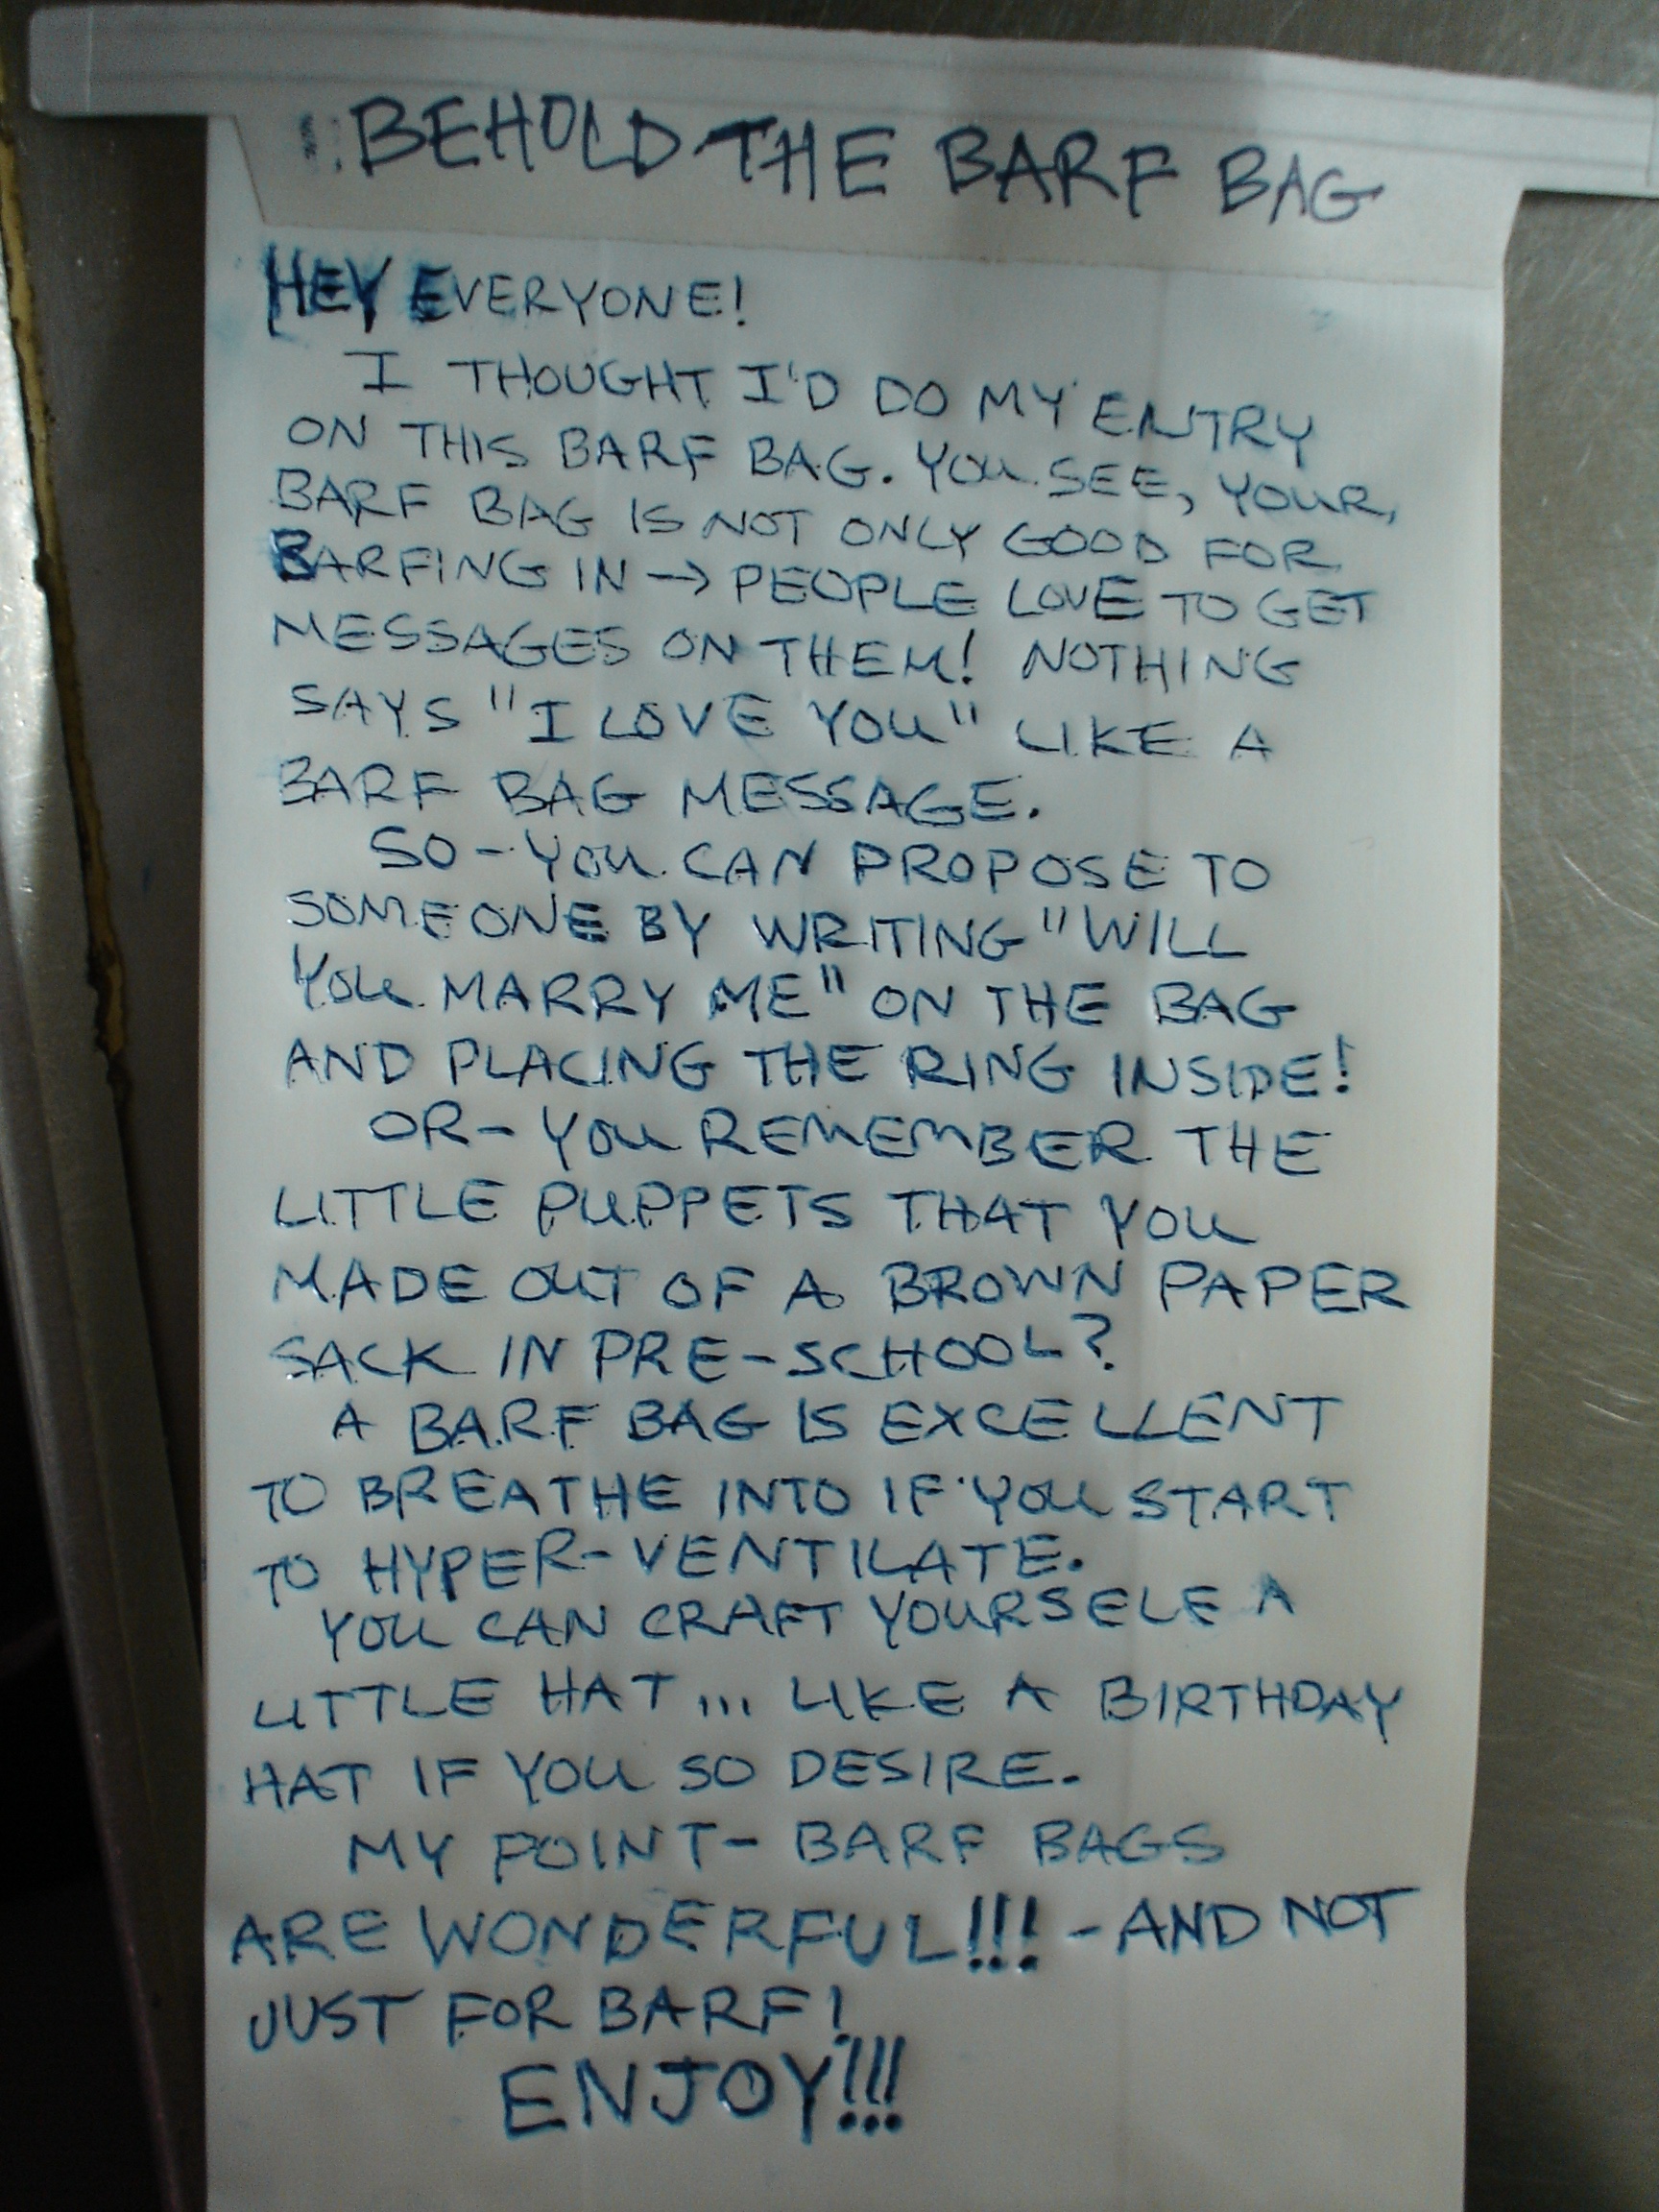 BEHOLD THE BARF BAG
HEY EVERYONE!
I THOUGHT I'D DO MY ENTRY
ON THIS BARF BAG. YOU SEE, YOUR,
BARF BAG IS NOT ONLY GOOD FOR
BARFING IN → PEOPLE LOVE TO GET
MESSAGES ON THEM! NOTHING
SAYS "I LOVE YOU" LIKE A
BARF BAG MESSAGE.
SO - YOU CAN PROPOSE TO
SOMEONE BY WRITING "WILL
YOU MARRY ME" ON THE BAG
AND PLACING THE RING INSIDE!
OR - YOU REMEMBER THE
LITTLE PUPPETS THAT YOU
MADE OUT OF A BROWN PAPER
SACK IN PRE-SCHOOL?
A BARF BAG IS EXCELLENT
TO BREATHE INTO IF YOU START
TO HYPER-VENTILATE.
YOU CAN CRAFT YOURSELF A
LITTLE HAT... LIKE A BIRTHDAY
HAT IF YOU SO DESIRE.
MY POINT - BARF BAGS
ARE WONDERFUL!!! - AND NOT
JUST FOR BARF!
ENJOY!!!